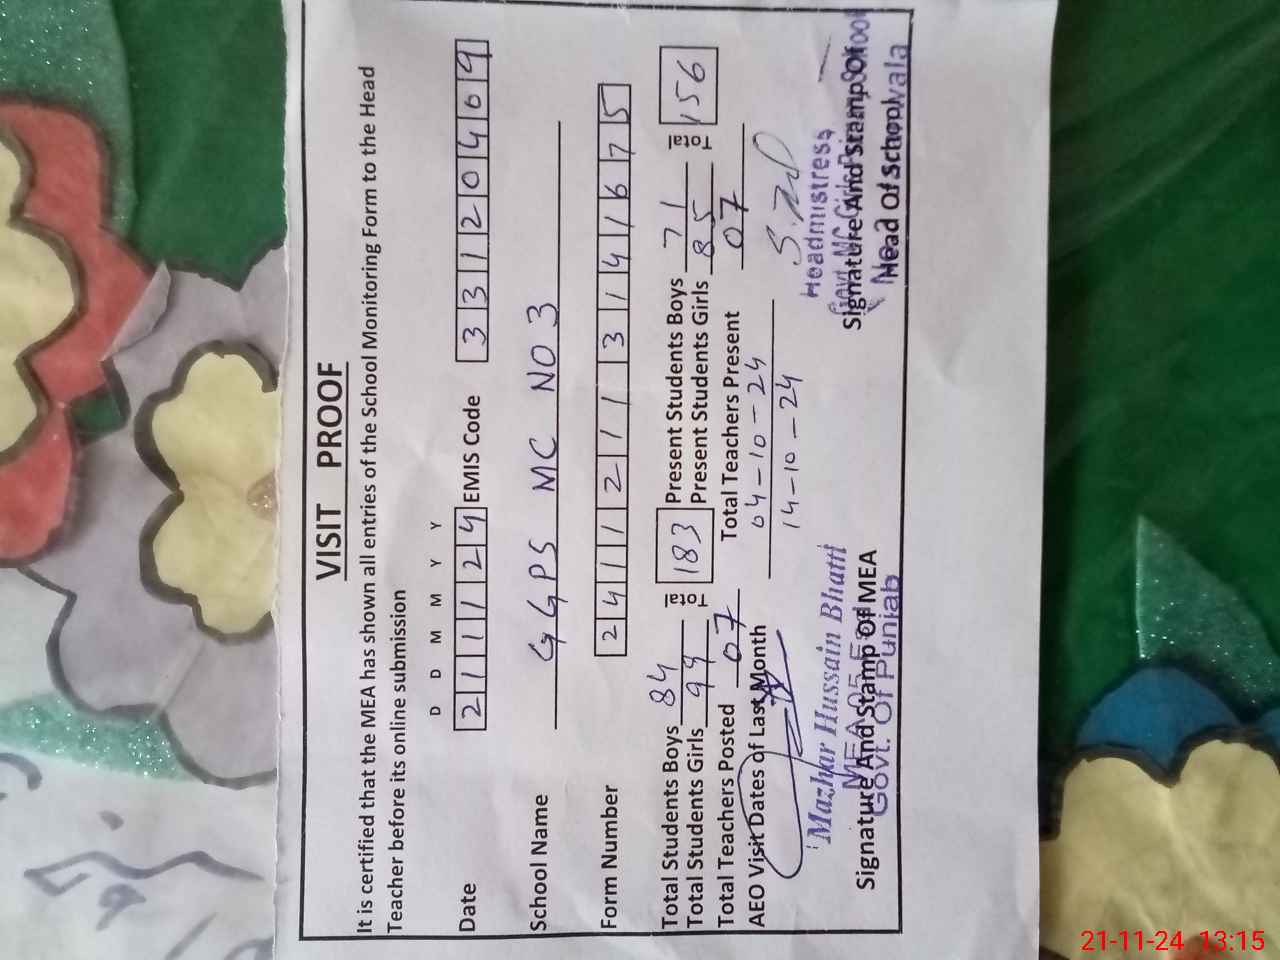 VISIT PROOF
It is certified that the MEA has shown all entries of the School Monitoring Form to the Head
Teacher before its online submission
D D M M Y Y
Date 211124 EMIS Code 33120409
School Name GGPS MC NO 3
Form Number 2411211314 1675
Total Students Boys 84 Total 183 Present Students Boys 71 Total 156
Total Students Girls 99 Present Students Girls 85
Total Teachers Posted 07 Total Teachers Present 07
AEO Visit Dates of Last Month 04-10-24
14-10-24
Mazhar Hussain Bhatti Headmistress
Govt. MC
Signature And Stamp Of MEA Signature And Stamp Of
Govt. Of Punjab Head Of School
21-11-24 13:15